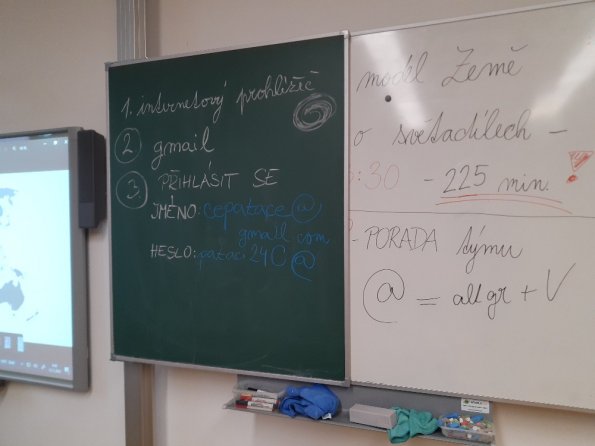 1. internetový prohlížeč
2 gmail
3. PŘIHLÁSIT SE
JMÉNO: cepatace@
gmail.com
HESLO: pataci24C@
model Země
o světadílech -
:30 - 225 min. !
- PORADA týmu
@ = alt gr + V